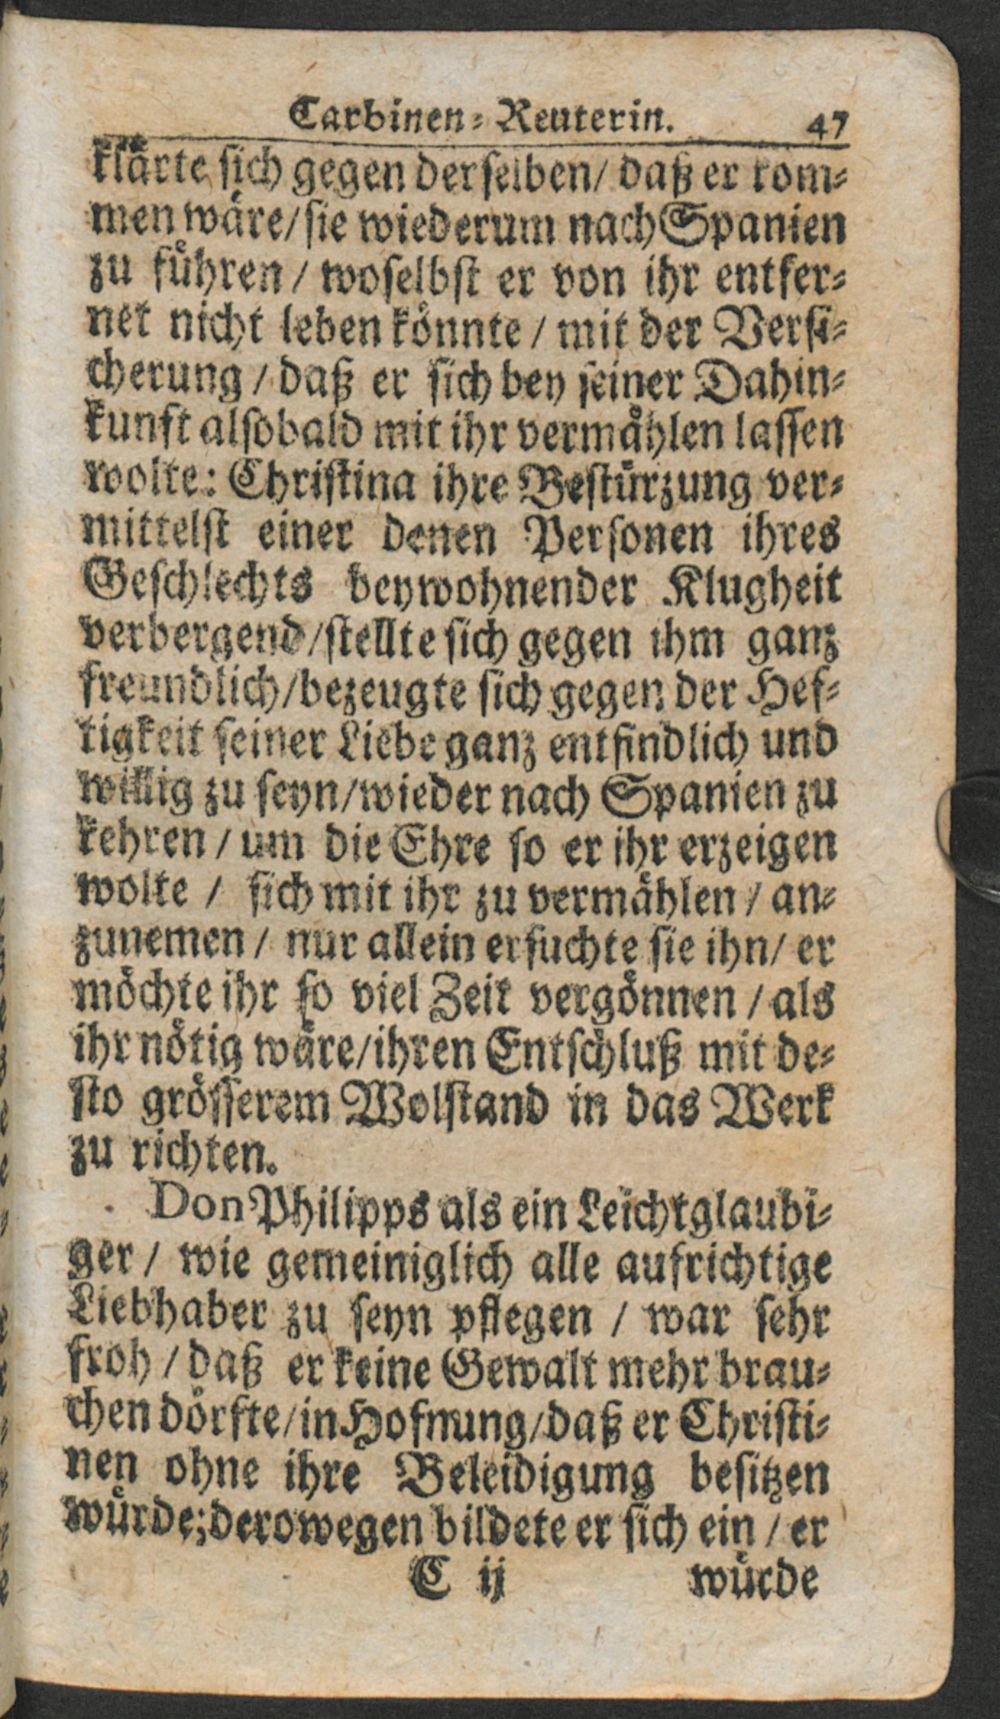 Carbinen-Reuterin. 47
klärte sich gegen derselben/ daß er kom-
men wäre/ sie wiederum nach Spanien
zu führen / woselbst er von ihr entfer-
net nicht leben könnte / mit der Versi-
cherung / daß er sich bey seiner Dahin-
kunft alsobald mit ihr vermählen lassen
wolte: Christina ihre Bestürzung ver-
mittelst einer denen Personen ihres
Geschlechts beywohnender Klugheit
verbergend/stellte sich gegen ihm ganz
freundlich/bezeugte sich gegen der Hef-
tigkeit seiner Liebe ganz entfindlich und
willig zu seyn/wieder nach Spanien zu
kehren / um die Ehre so er ihr erzeigen
wolte / sich mit ihr zu vermählen / an-
zunemen / nur allein ersuchte sie ihn/ er
möchte ihr so viel Zeit vergönnen / als
ihr nötig wäre/ihren Entschluß mit de-
sto grösserem Wolstand in das Werk
zu richten.
Don Philipps als ein Leichtglaubi-
ger / wie gemeiniglich alle aufrichtige
Liebhaber zu seyn pflegen / war sehr
froh / daß er keine Gewalt mehr brau-
chen dörfte/in Hofnung/daß er Christi-
nen ohne ihre Beleidigung besitzen
würde;derowegen bildete er sich ein / er
C ij würde